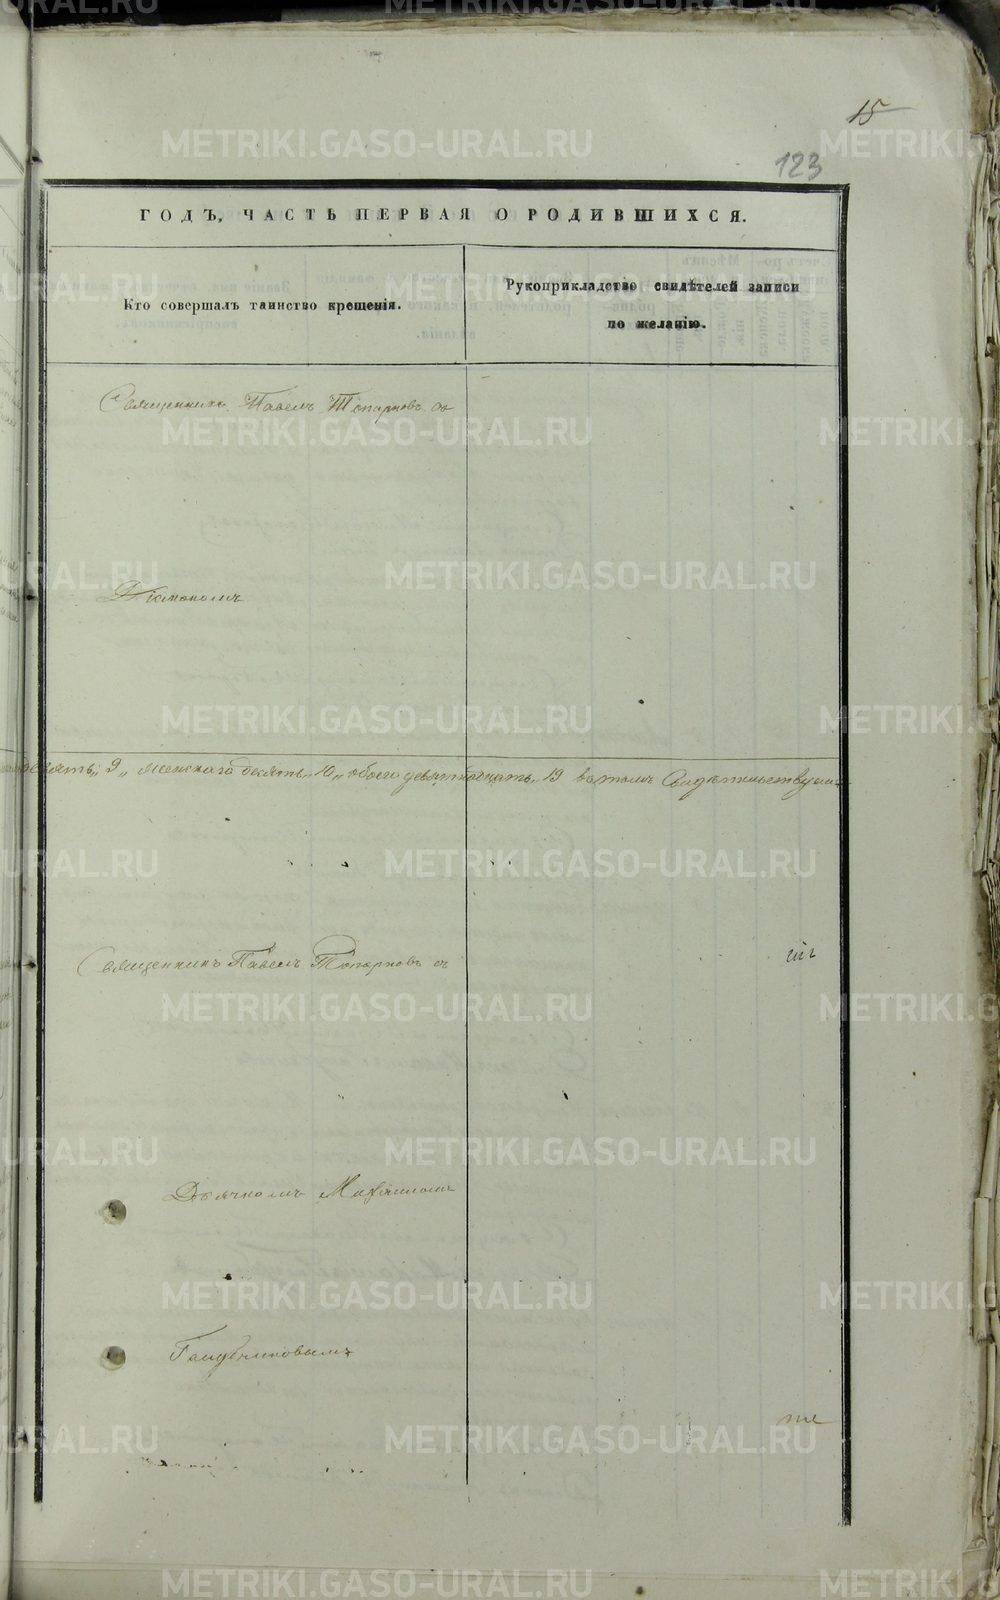 15
123
ГОДЪ, ЧАСТЬ ПЕРВАЯ О РОДИВШИХСЯ.
Кто совершалъ таинство крещенія.
Рукоприкладство свидѣтелей записи
по желанію.
Священникъ Павелъ Топарковъ съ
Діакономъ
девять „9„ женскаго десять „10„ обоего девятнадцать „19 въ томъ Свидѣтельствуемъ
Священникъ Павелъ Топорковъ съ
Дьячкомъ Михаиломъ
METRIKI.GASO-URAL.RU